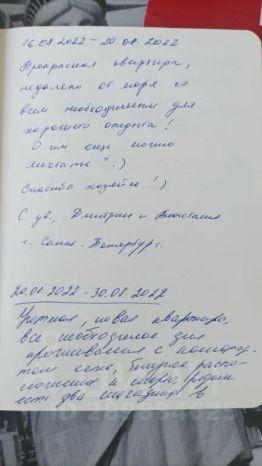 16.08.2022 – 20.08.2022
Прекрасная квартира,
недалеко от моря со
всем необходимым для
хорошего отдыха!
О чём ещё можно
мечтать? :)
Спасибо хозяйке! :)
С ув, Дмитрий и Анастасия
г. Санкт-Петербург.
20.08.2022 - 30.08.2022
Уютная, новая квартира,
всё необходимое для
проживания с комфор-
том есть, близкое распо-
ложение к морю, рядом
есть два магазина, в